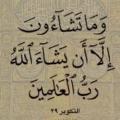 وَمَا تَشَآءُونَ
إِلَّآ أَن يَشَآءَ ٱللَّهُ
رَبُّ ٱلْعَٰلَمِينَ
التكوير ٢٩